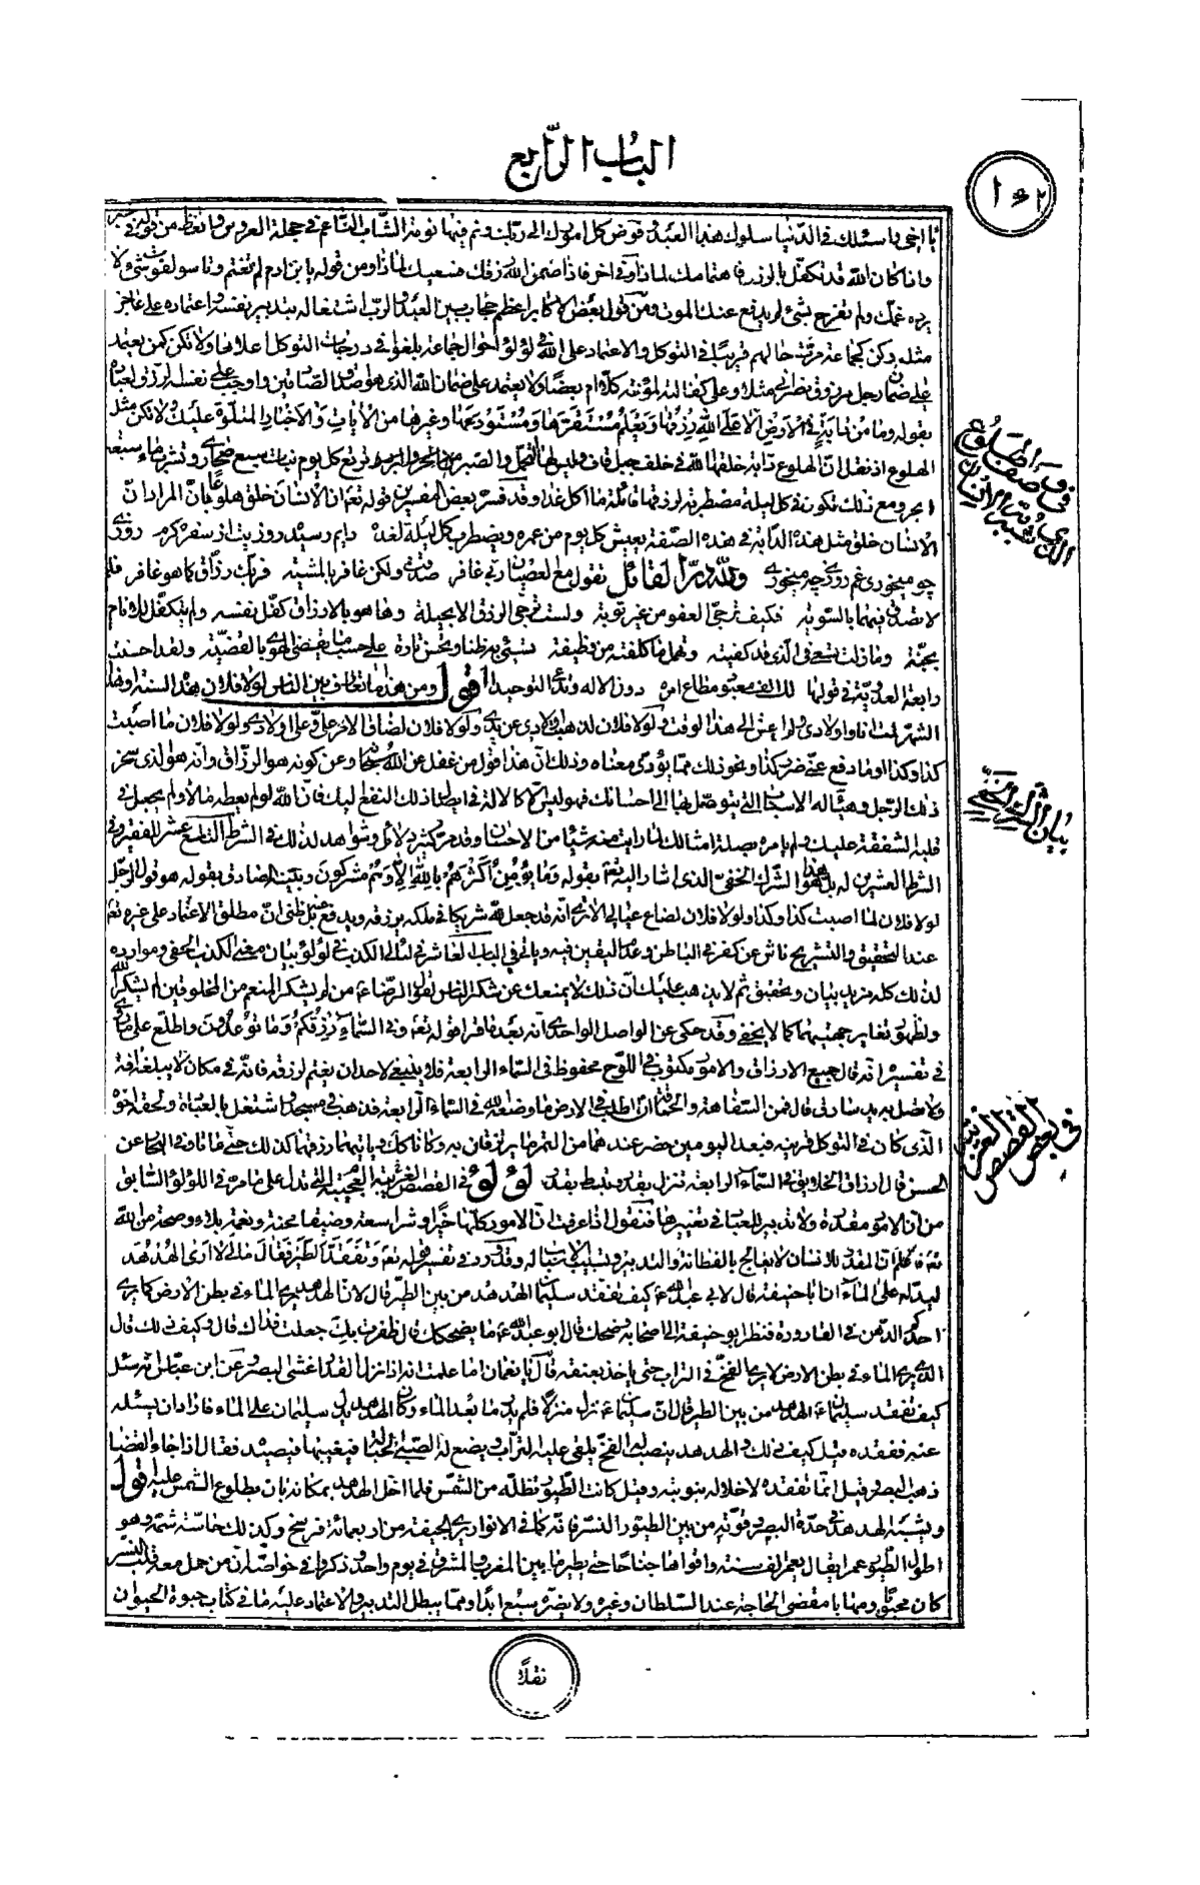 الباب الرّابع
يا اخى فاسئلك فى الدّنيا سلوك هذا العبد وفوض كل امورك الى ربّك ونم فيها نومة الشّابّ النّاعم فى حجلة العروس وما تعظ من قوله
واذا كان اللّه قد تكفّل بالرزق فاهتمامك لماذا وفى اخر فاذا ضمن اللّه رزقك فسعيك لماذا ومن قوله يابن ادم لم تغتم
يرد غمّك ولم تفرح بشئ لم يدفع عنك الموت ومن قول بعض الاكابر اعظم حجاب بين العبد والربّ اشتغاله بتدبير نفسه واعتماده على عاجز
مثله وكن كجماعة مرّت حالهم قريبًا فى التوكل والاعتماد على اللّه فى لؤلؤ احوال جماعة بلغوا فى درجات التوكل اعلاها ولا تكن كمن يعتمد
على ضمان رجل مرزوق نصرانى مثلا وعلى كفالته لمؤنته كلّا ام بعضًا ولا يعتمد على ضمان اللّه الذى هو اصدق الصّادقين واوجب على نفسه ارزق العباد
بقوله وما من دابّة فى الارض الّا على اللّه رزقها ويعلم مستقرّها ومستودعها وغيرها من الايات والاخبار المتلوّة عليك ولا تكن مثل
الهلوع اذ نقل انّ الهلوع دابّة خلقها اللّه فى خلف جبل قاف وليس لها التحمل والصبر من الحر والبرد ترتع كل يوم نبات سبع صحارى وتشرب ماء سبعة
ابحر ومع ذلك تكون فى كل ليلة مضطربة لرزقها قائلة ما اكل غدا وقد فسّر بعض المفسرين قوله تعم ان الانسان خلق هلوعًا بانّ المراد انّ
الانسان خلق مثل هذه الدابّة فى هذه الصّفة يعيش كل يوم من عمره ويضطرب كل ليلة لغده دايم رسيد روزيت از سفره كرم روزى
چو ميخورى غم روزى چه ميخورى وللّه درّ القائل تقول مع العصيان ربّى غافر صدقت ولكن غافر بالمشيّة فربّك رزّاق كما هو غافر فلم
لا تصدق فيهما بالسّويّة فكيف ترجّى العفو من غير توبة ولست ترجى الرزق الا بحيلة وها هو بالارزاق كفل نفسه ولم يتكفّل للانام
بجنّة وما زلت تسعى فى الّذى قد كفيته وتهمل ما كلّفته من وظيفة تسئ به ظنا وتحسن تارة على حسب ما يقضى الهوى بالقضيّة ولقد احسنت
رابعة العدويّة فى قولها لك الف معبود مطاع امره دون الاله وتدّعى التوحيدا اقول ومن هذا ما تعارف بين الناس لولا فلان هذه السنة او هذا
الشهر لمتّ انا واولادى ولم اعش الى هذا الوقت ولولا فلان لذهب اولادى عن يدى ولولا فلان لضاق الامر علىّ وعلى اولادى ولولا فلان ما اصبت
كذا وكذا او ما دفع عنّى ضرر كذا ونحو ذلك ممّا يؤدّى معناه وذلك انّ هذا قول من غفل عن اللّه سبحانه وعن كونه هو الرزّاق وانّه هو الذى سخر
ذلك الرّجل وهيّأ له الاسباب التى يتوصل بها الى احسانك فهو ليس الّا كالالة فى ايصال ذلك النفع اليك فانّ اللّه لو لم يعطه مالا ولم يجعل فى
قلبه الشفقة عليك ولم يامره بصلة امثالك لما رايت منه شيئًا من الاحسان وقد مرّ كثير دلائل وشواهد لذلك فى الشرط التاسع عشر للفقير وفى
الشرط العشرين له بل هذا هو الشّرك الخفىّ الذى اشار اليه تعم بقوله وما يؤمن اكثرهم باللّه الّا وهم مشركون وبيّنه الصادق بقوله هو قول الرّجل
لولا فلان لما اصبت كذا وكذا ولولا فلان لضاع عيالى الا ترى انّه قد جعل للّه شريكًا فى ملكه يرزقه ويدفع عنه بل ظنى انّ مطلق الاعتماد على غيره تعم
عند التحقيق والتشريح ناش عن كفر فى الباطن وعدم اليقين فيه وياتى فى الباب العاشر فى لئالى الكذب فى لؤلؤ بيان معنى الكذب الخفى وموارده
لذلك كله مزيد بيان وتحقيق ثم لا يذهب عليك انّ ذلك لا يمنعك عن شكر الناس لقول الرضا عم من لم يشكر المنعم من المخلوقين لم يشكر اللّه
ولظهور تغاير جهتيهما كما لا يخفى وقد حكى عن الواصل الواحدى انه بعد ما قرا قوله تعم وفى السّماء رزقكم وما توعدون واطلع على
فى تفسيره انّه قال جميع الارزاق والامور مكتوب فى اللوح محفوظ فى السّماء الرابعة فلا ينبغى لاحد ان يغتم لرزقه فانّه فى مكان لا يبلغه افة
ولا تصل به يد سارق قال فمن السّفاهة والحماقة ان اطلب فى الارض ما وضعه اللّه فى السّماء الرابعة فذهب فى مسجد واشتغل بالعبادة ولحقه اخوه
الّذى كان فى التوكل قرينه فبعد اليومين حضر عندهما من التمر ما يرتزقان به وكانا كل يوم ياتيهما رزقهما كذلك حتى ماتا وفى البحار عن
الحسن قال ارزاق الخلايق فى السّماء الرابعة تنزل بقدر وتبسط بقدر لؤلؤ فى القصص الغريبة العجيبة التى تدل على ما مرّ فى اللؤلؤ السّابق
من ان الامور مقدرة ولا تدبير للعباد فى تغييرها فنقول اذا عرفت انّ الامور كلّها خيرًا وشرا سعة وضيقا محنة ونعمة بلاء وصحة من اللّه
تعم فاعلم انّ المقدر للانسان لا يعالج بالفطانة والتدبير وتسبيب الاسباب له وقد ورد فى تفسير قوله تعم وتفقّد الطّير فقال مالى لا ارى الهدهد
ليدلّه على الماء انّ ابا حنيفة قال لابى عبد اللّه عم كيف تفقد سليمان الهدهد من بين الطيّر قال لانّ الهدهد يرى الماء فى بطن الارض كما يرى
احدكم الدّهن فى القارورة فنظر ابو حنيفة الى اصحابه وضحك قال ابو عبد اللّه عم ما يضحكك قال ظفرت بك جعلت فداك قال وكيف ذلك قال
الذى يرى الماء فى بطن الارض لا يرى الفخّ فى التراب حتى ياخذ بعنقه قال يا نعمان اما علمت انه اذا نزل القدر اغشى البصر وعن ابن عبّاس انّه سئل
كيف تفقد سليمان عم الهدهد من بين الطير قال انّ سليمان عم نزل منزلا فلم يدر ما بعد الماء وكان الهدهد يدل سليمان على الماء فاراد ان يسئله
عنه ففقده فقيل كيف ذلك والهدهد ينصب له الفخّ يلقى عليه التراب ويضع له الصّبىّ الحبالة فيغيبها فيصيده فقال اذا جاء القضاء
ذهب البصر وقيل انّما تفقده لاخلاله بنوبته وقيل كانت الطّيور تظلّه من الشّمس فلما اخلّ الهدهد بمكانه بان بطلوع الشمس عليه اقول
ويشبه الهدهد فى حدّة البصر وقوّته من بين الطيور النّسر فانه كما فى الانوار يرى الجيفة من اربعمائة فرسخ وكذلك حاسّة شمّه وهو
اطول الطّيور عمرا يقال يعمر الف سنة واقواها جناحًا حتى يطير ما بين المغرب والمشرق فى يوم واحد وذكروا فى خواصّه ان من حمل معه قلب النسر
كان محبوبًا ومهابا مقضى الحاجة عند السّلطان وغيره ولا يضرّه سبع ابدًا وممّا يبطل التدبير والاعتماد عليه ما فى كتاب حيوة الحيوان
بيان الشرك الخفى
فى بعض القصص الغريبة
نقلًا